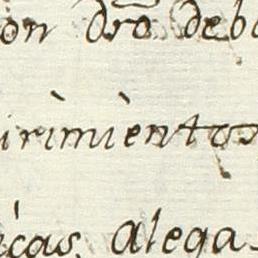 ion dro debo
irimièntos
icas, alega